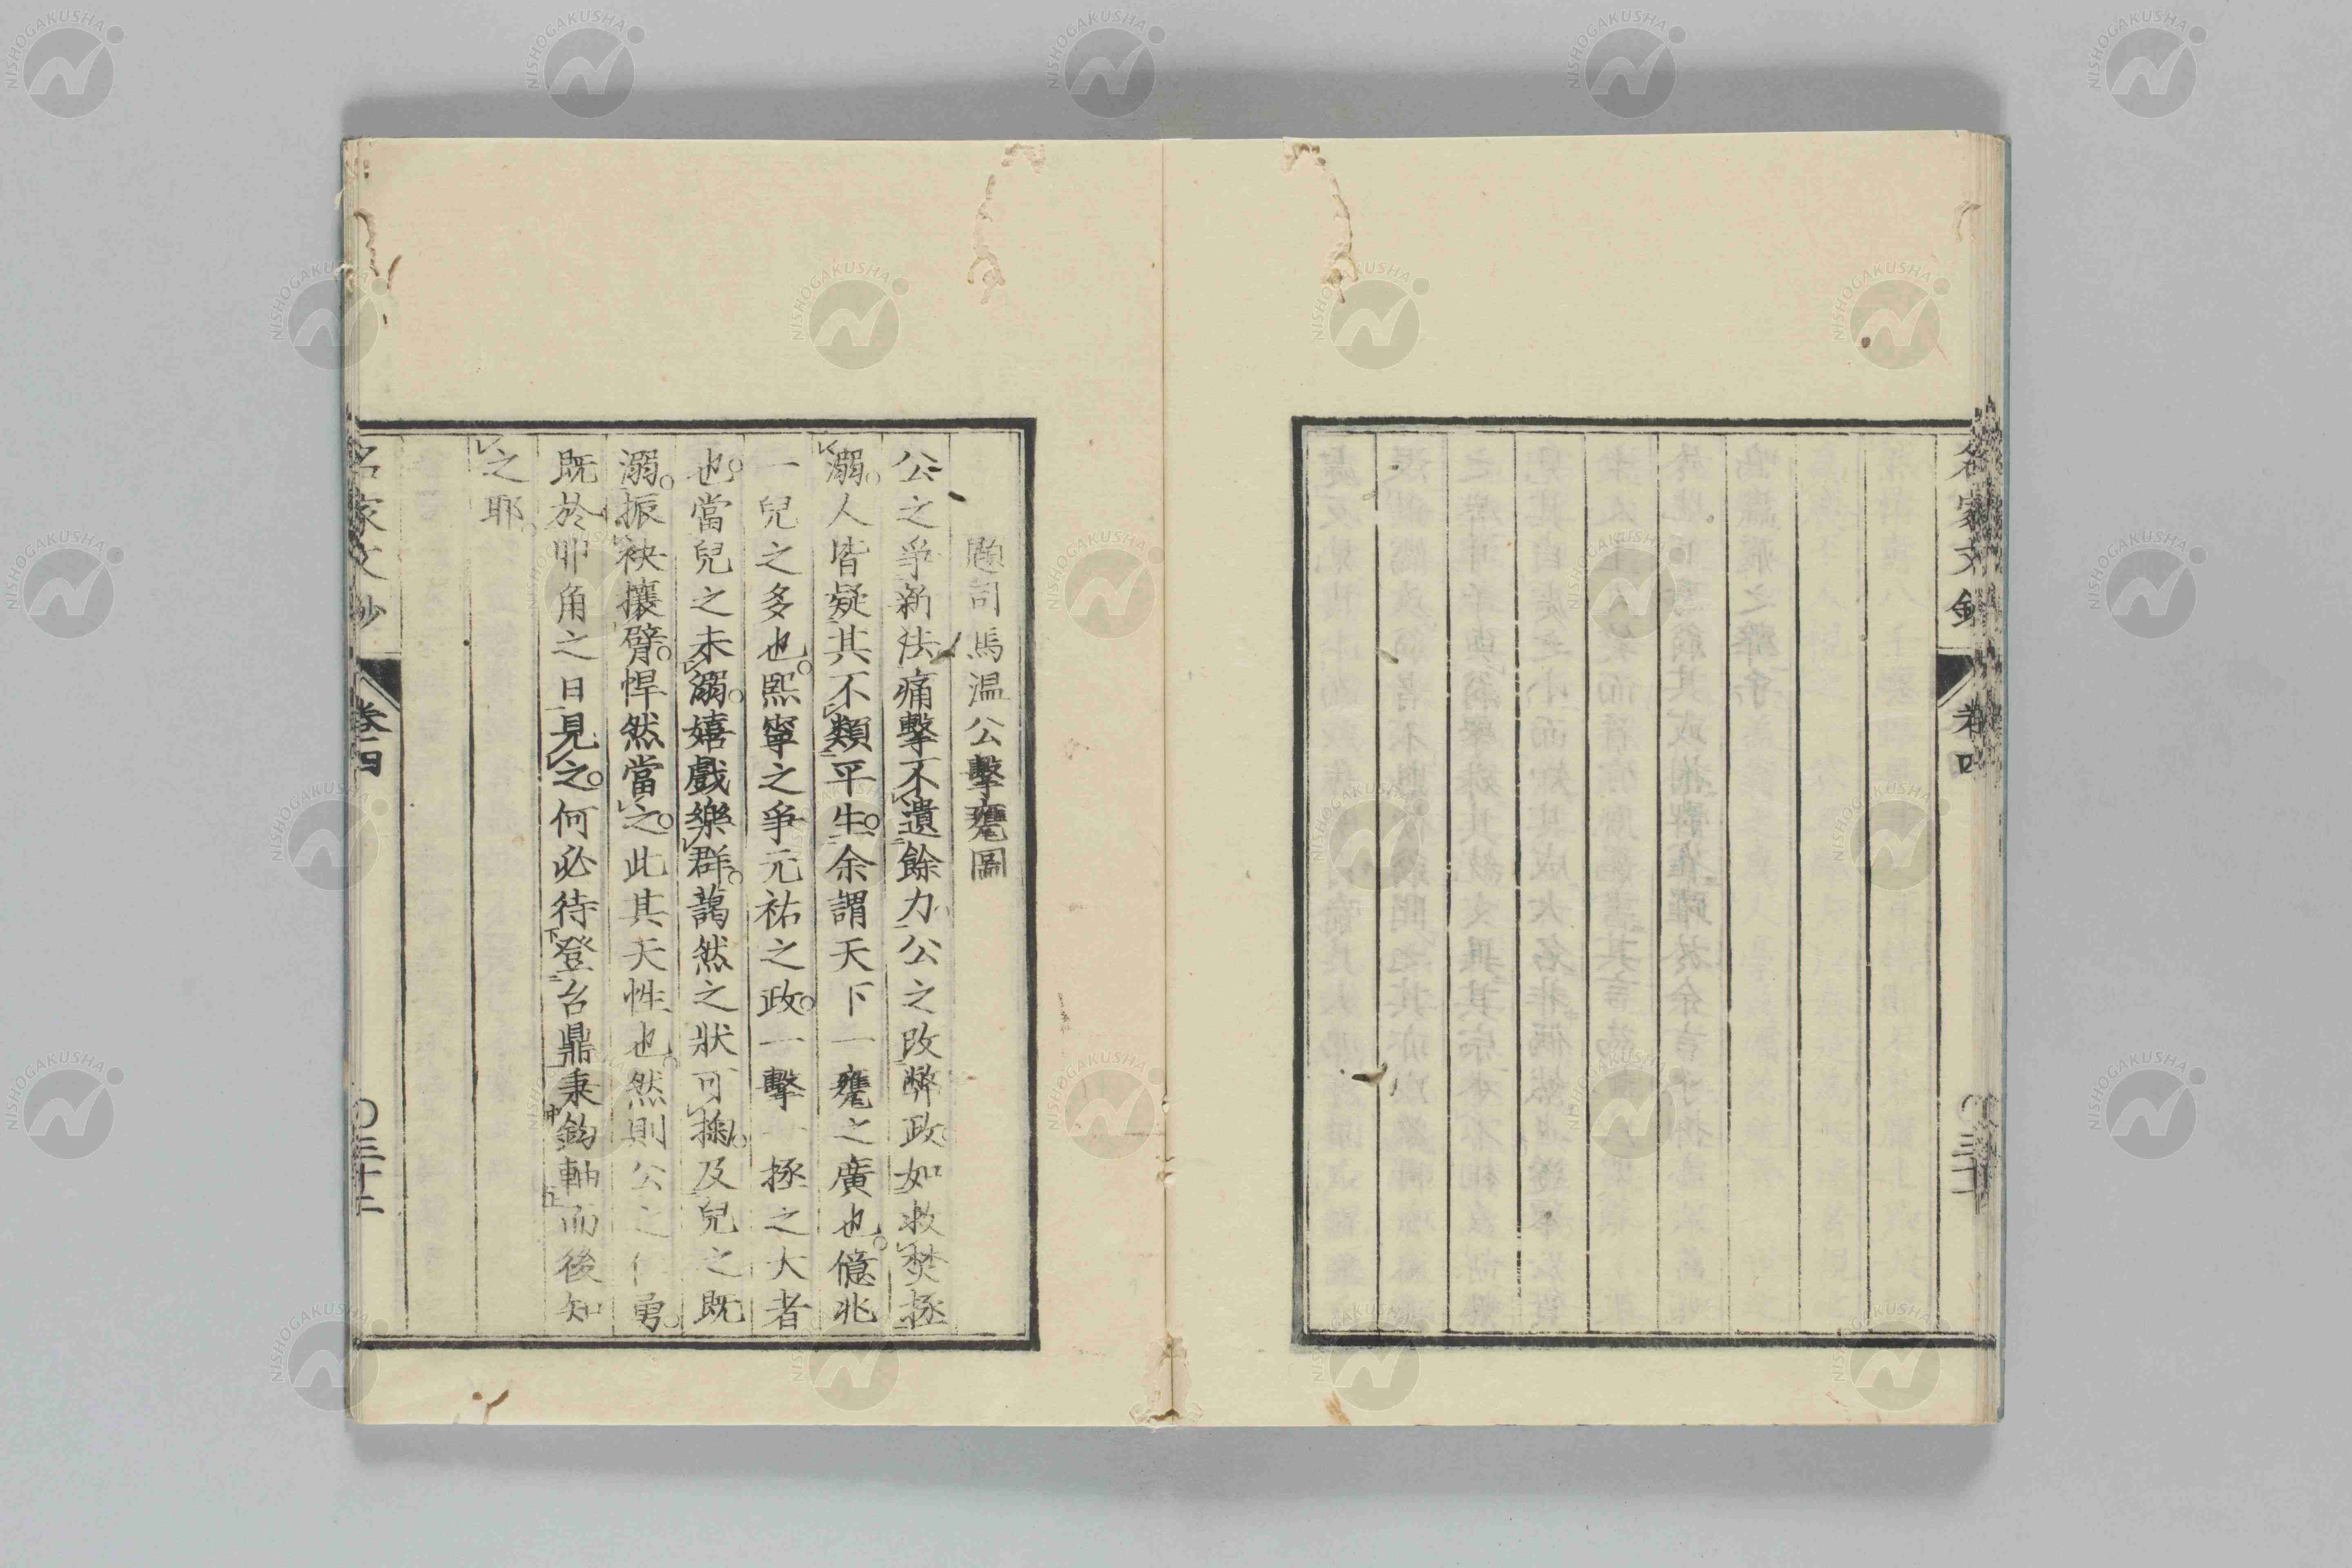 名家文鈔 卷四 〇三十
題司馬温公擊甕圖
公之爭新法痛擊不遺餘力公之改弊政如救焚拯
溺人皆疑其不類平生余謂天下一甕之廣也億兆
一兒之多也熙寧之爭元祐之政一擊一拯之大者
也當兒之未溺嬉戲樂群藹然之狀可掬及兒之既
溺振袂攘臂悍然當之此其天性也然則公之仁勇
既於丱角之日見之何必待登台鼎秉鈞軸而後知
之耶
名家文鈔 卷四 〇三十二
NISHOGAKUSHA